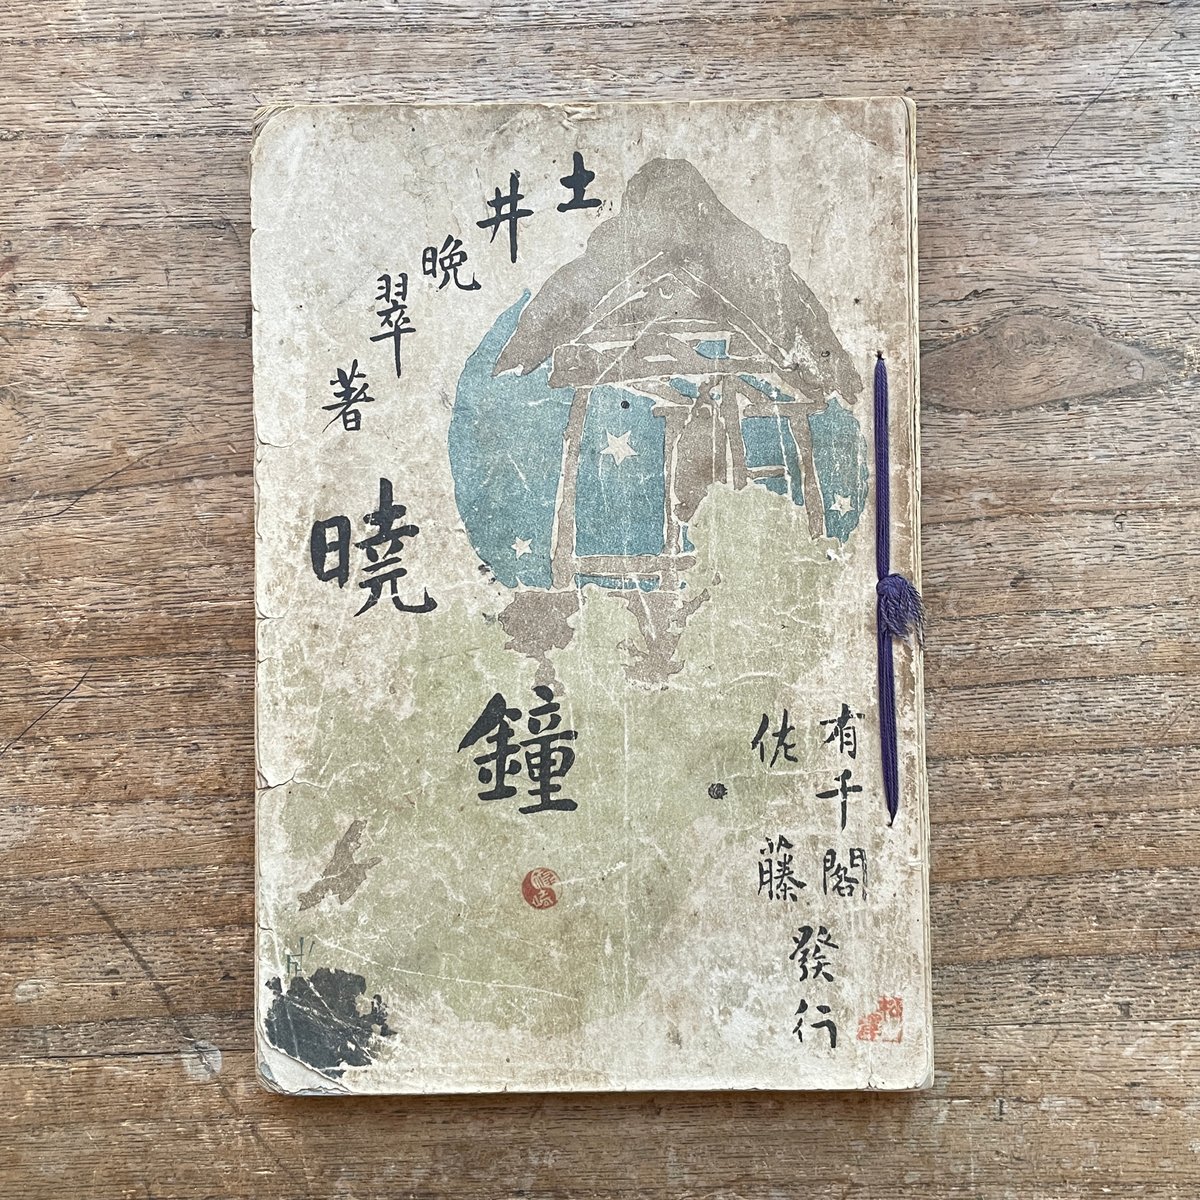 土井晩翠著
曉鐘
有千閣
佐藤
發行